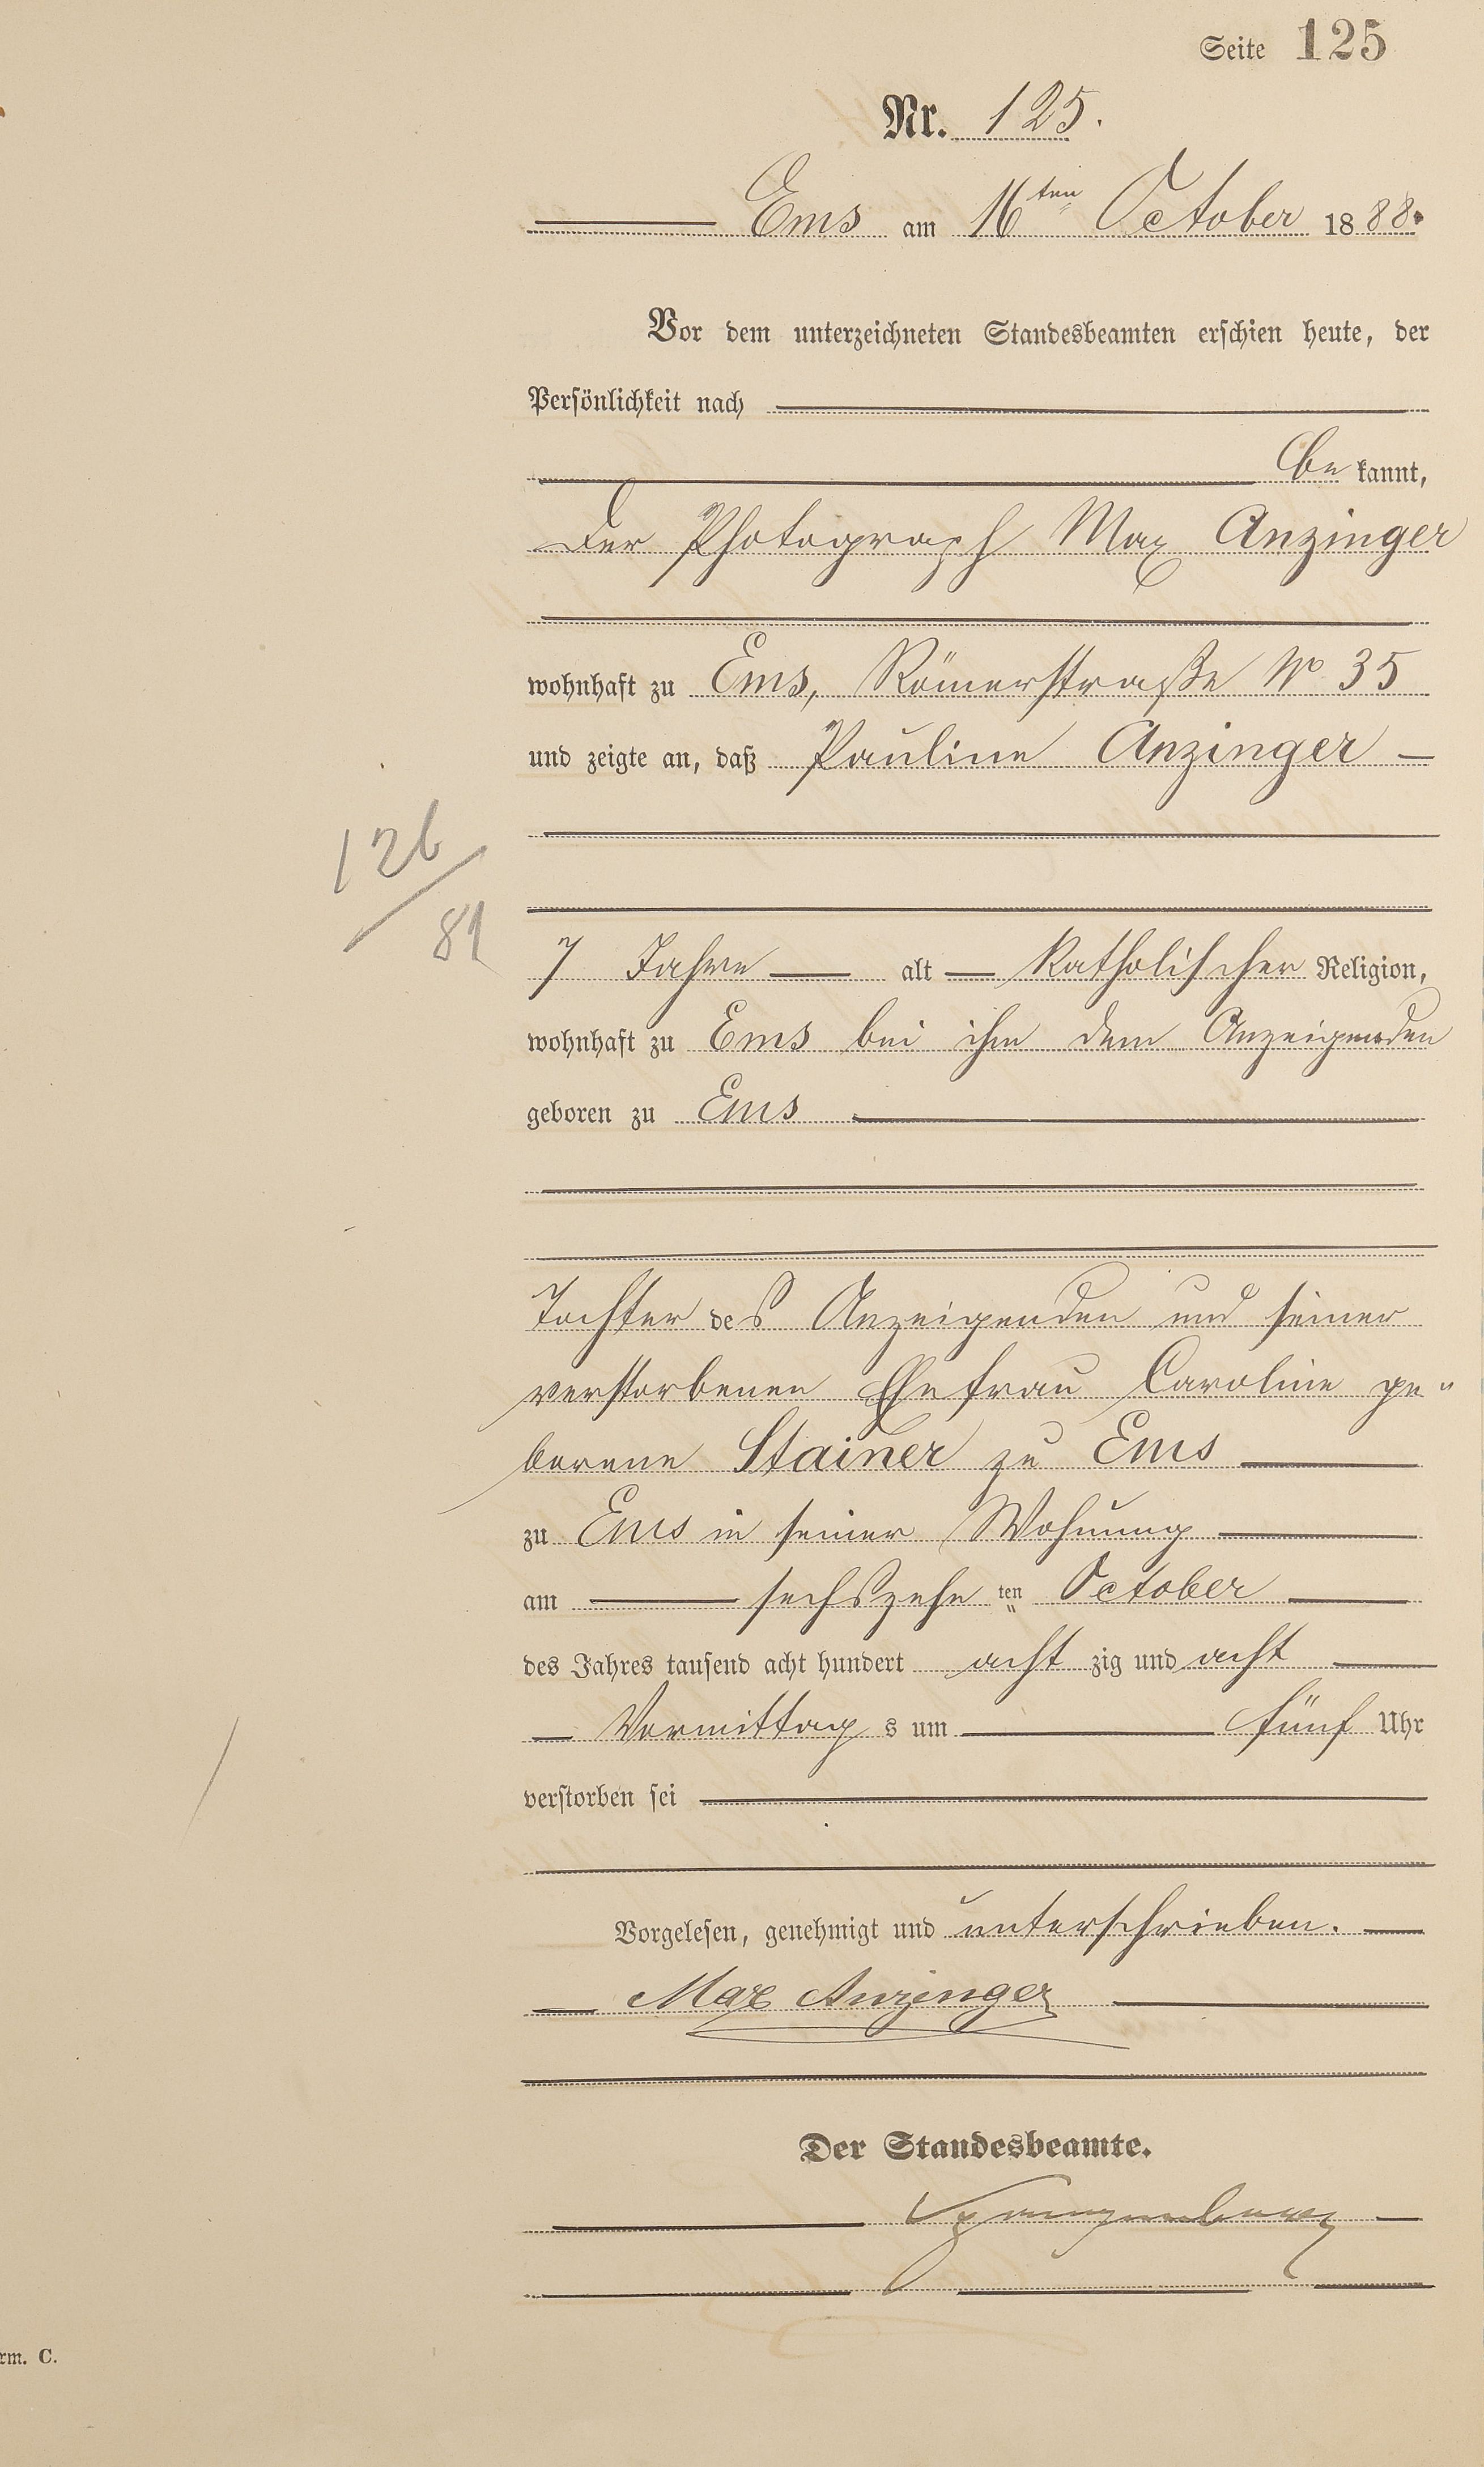 Seite 125
Nr. 125.
Ems am 16ten October 1888.
Vor dem unterzeichneten Standesbeamten erschien heute, der
Persönlichkeit nach
bekannt,
der Photograph Max Anzinger
wohnhaft zu Ems, Römerstraße No 35
und zeigte an, daß Pauline Anzinger
126
/81
7 Jahre alt katholischer Religion,
wohnhaft zu Ems bei ihm dem Anzeigenden
geboren zu Ems
Tochter des Anzeigenden und seiner
verstorbenen Ehefrau Caroline ge"
borene Stainer zu Ems
zu Ems in seiner Wohnung
am sechszehnten October
des Jahres tausend acht hundert achtzig und acht
Vormittags um fünf Uhr
verstorben sei
Vorgelesen, genehmigt und unterschrieben.
Max Anzinger
Der Standesbeamte.
rm. C.